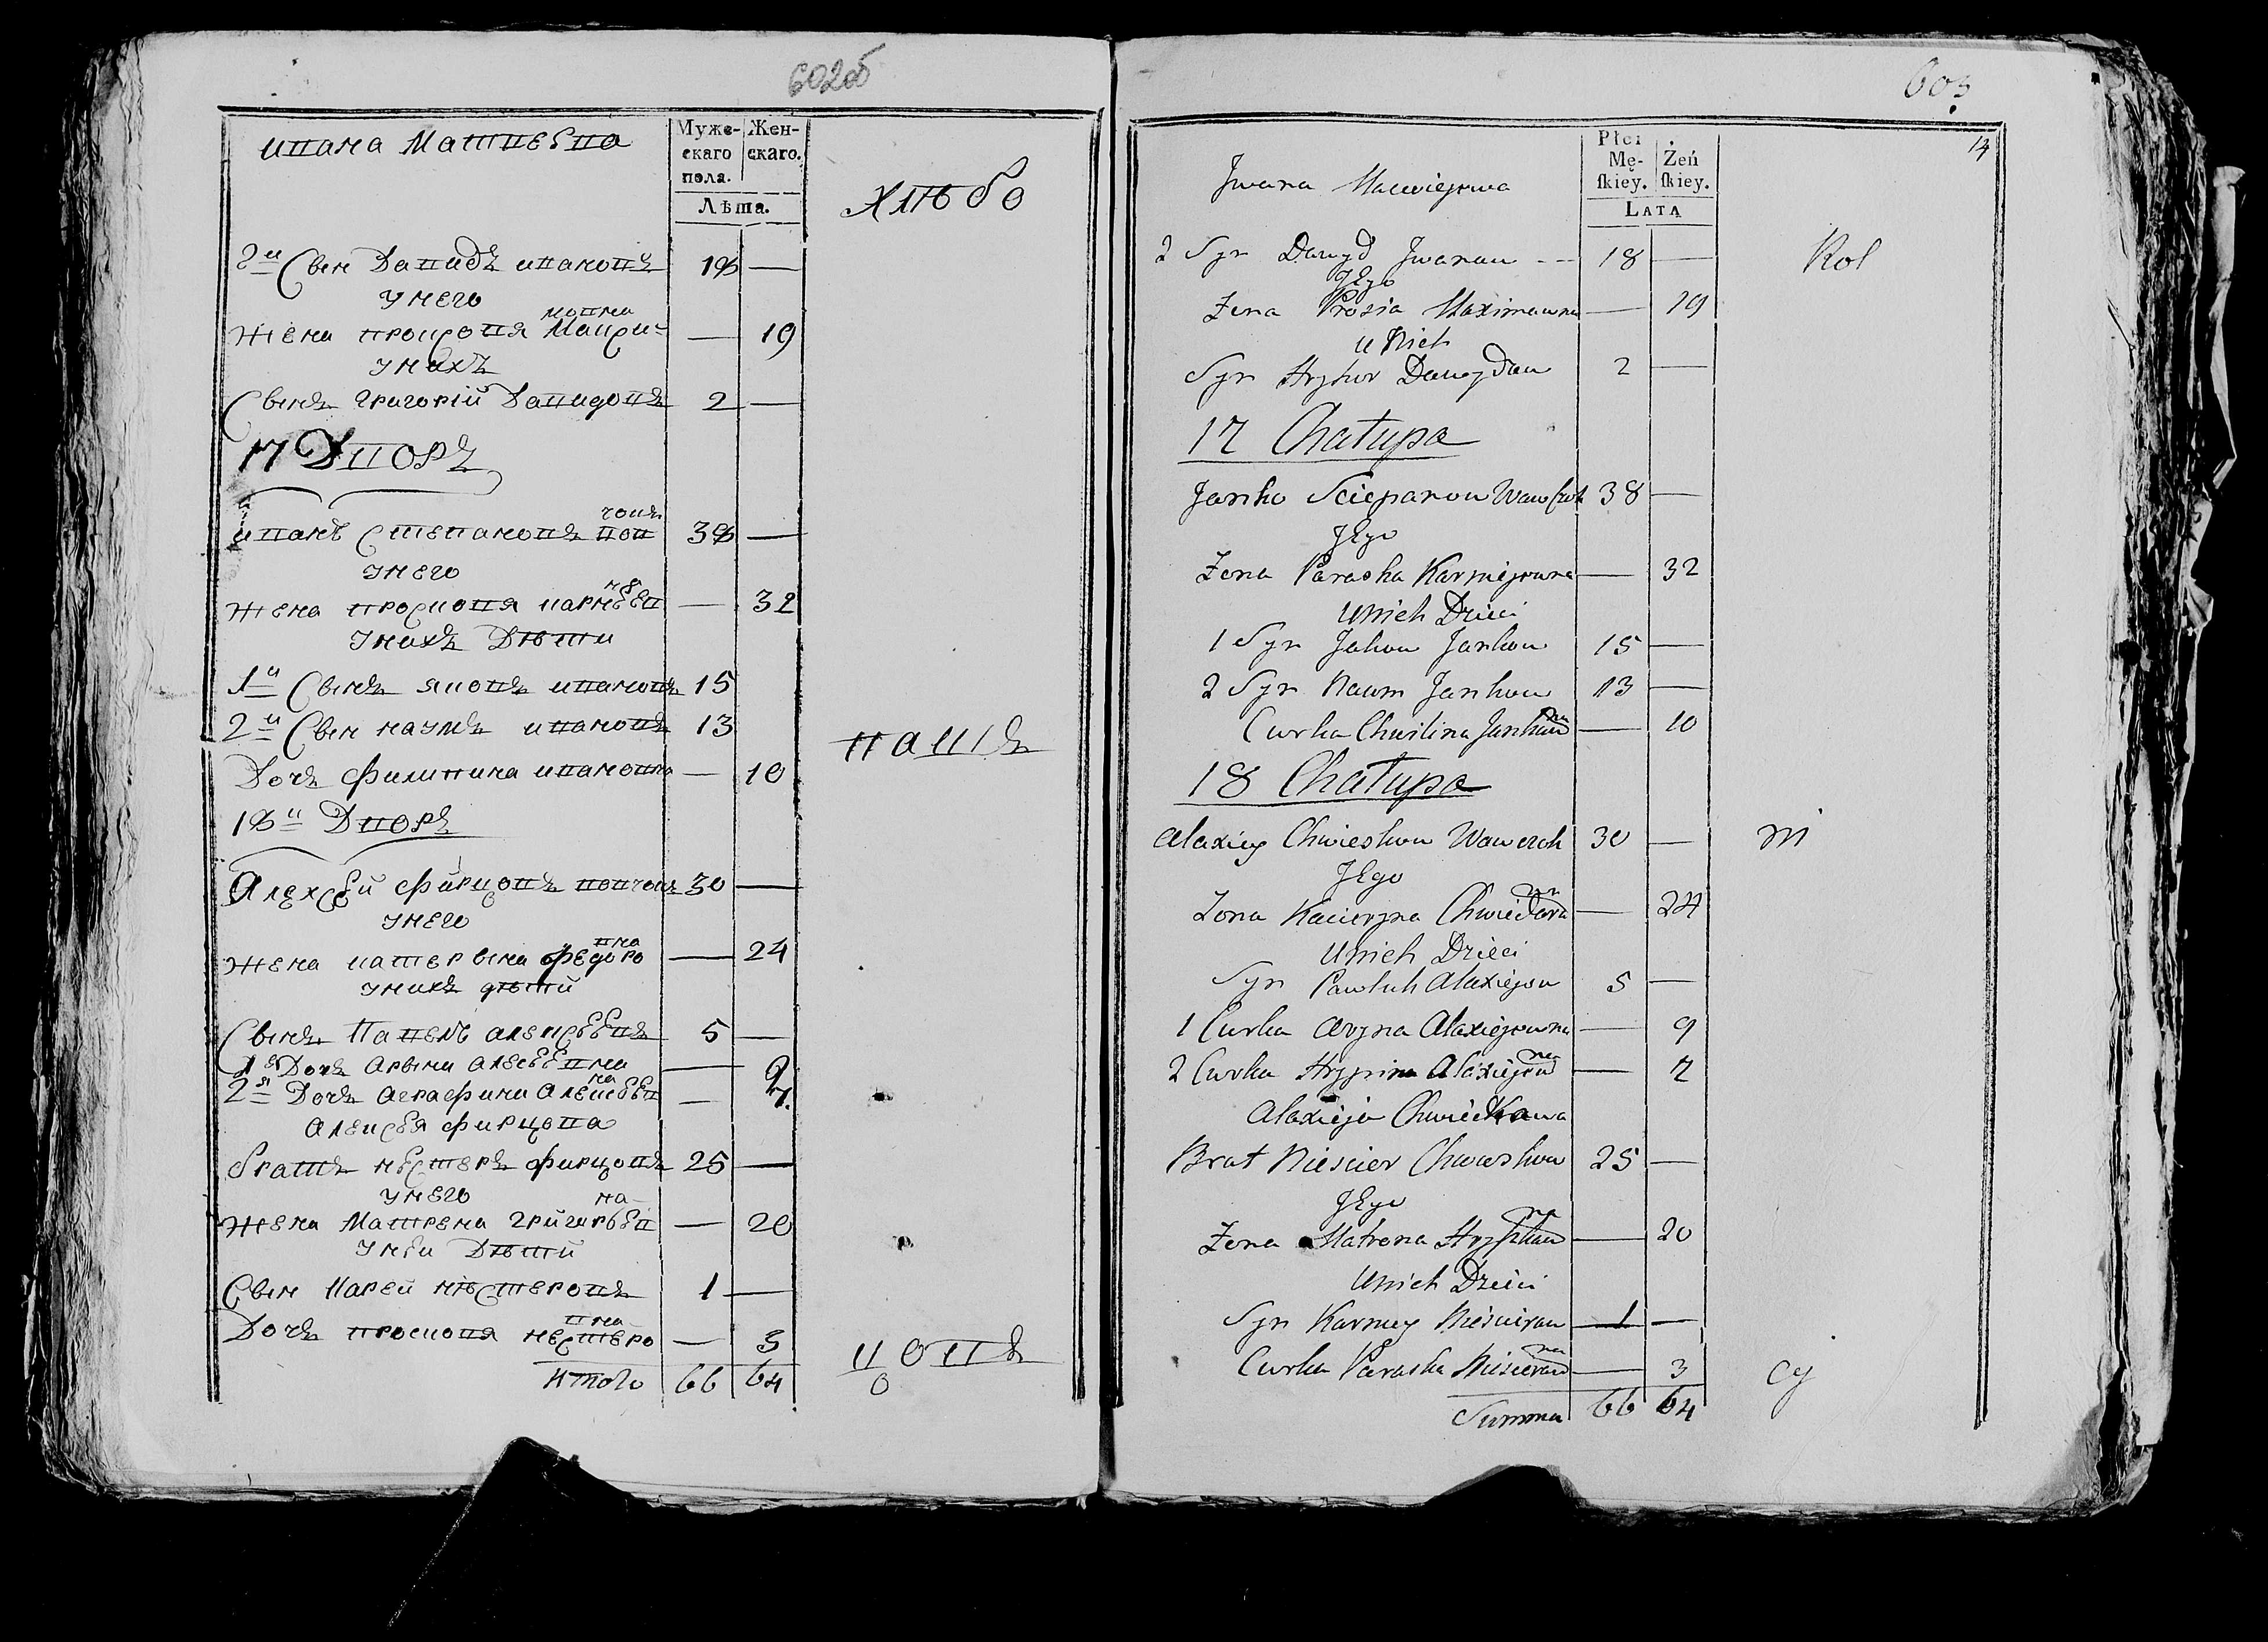 602об
ивана Матвеева
Муже-
скаго
пола.
Жен-
скаго.
Лѣта.
хлѣбо
2й Сын Давидъ ивановъ 18 —
унего
жена просковя Макси мовна — 19
унихъ
Сынъ григорій Давидовъ 2 —
17 Дворъ
иванъ степановъ вов чокъ 38 —
унего
жена просковя карнѣев на — 32
унихъ Дѣти
1й Сынъ яковъ ивановъ 15
2й Сын наумъ ивановъ 13
пашъ
Дочъ филипина ивановна — 10
18й Дворъ
Алексей фирцовъ вовчокъ 30 —
унего
жена катерына федоро вна — 24
унихъ дѣтй
Сынъ Павелъ алексеевъ 5 —
1я Дочъ Арына алесеевна — 9
2я Дочъ аграфина Алексеев на — 7.
Алексея фирцова
братъ нестеръ фирцовъ 25 —
унего
жена Матрена григорьев на — 20
унеи Дѣтй
Сын карей нѣстеровъ 1 —
Дочъ просковя нестеро вна — 3
ковъ
Итого 66 64
603
14
Płci
Mę-
ſkiey.
Żeń
ſkiey.
Lata
Jwana Maciejewa
2 Syn Dawyd Jwanau -- 18 —
Rol
Jego
Żona Prosia Maximawna — 19
u Nich
Syn Hryhor Dawydau 2 —
17 Chałupa
Janko Sciepanow Wawczok 38 —
Jego
Żona Paraska Karniejowna — 32
U Nich Dzieci
1 Syn Jakow Jankow 15 —
2 Syn Naum Jankow 13 —
Curka Chwilina Jankaw na — 10
18 Chałupa
Alaxiey Chwieskow Wawczok 30 —
ni
Jego
Żona Kacieryna Chwiedara wn — 24
U Nich Dzieci
Syn Pawluk Alaxiejow 5 —
1 Curka Aryna Alaxiejowna — 9
2 Curka Hrypina Alaxiejow na — 7
Alaxieja Chwieckowa
Brat Niescier Chwieskow 25 —
Jego
Żona Matrona Hryszkaw na — 20
U Nich Dzieci
Syn Karney Niescierau 1 —
Curka Paraska Niescieraw na — 3
cy
Summa 66 64